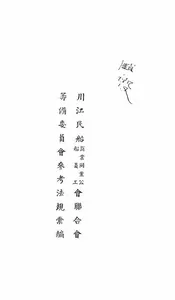 川江民船商業同業公船員工會聯合會
籌備委員會參考法規彙編